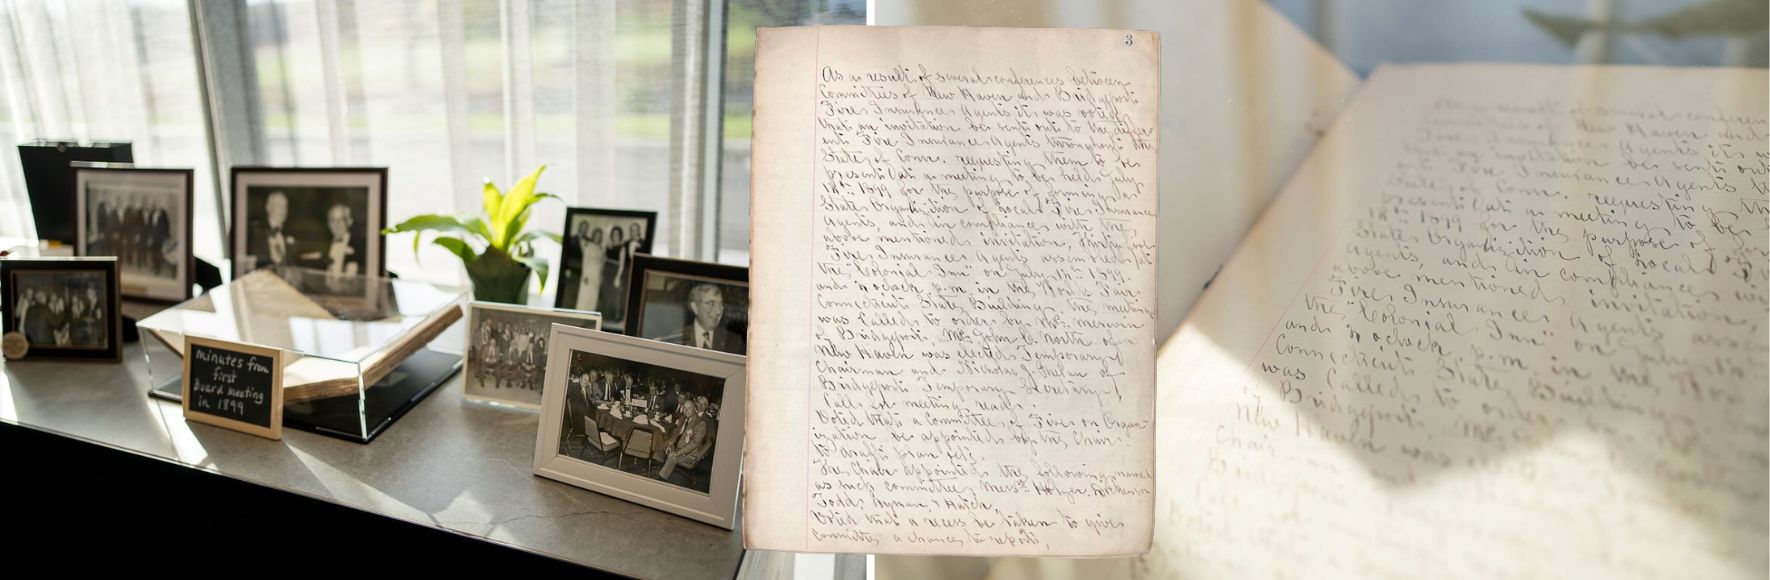 minutes from
first
Board meeting
in 1899
3
As a result of several conferences between
Committees of New Haven and Bridgeport
Fire Insurance Agents it was voted
that an invitation be sent out to the differ-
ent Fire Insurance Agents throughout the
State of Conn. requesting them to be
present at a meeting to be held July
18th 1899 for the purpose of forming a
State Organization of Local Fire Insurance
Agents, and in compliance with the
above mentioned invitation, thirty five
Fire Insurance Agents assembled at
the "Colonial Inn" on July 18th 1899
and oclock P.m in the
Connecticut State Building, the meeting
was Called to order by Mr. Merwin
of Bridgeport, Mr. John C. North of
New Haven was elected Temporary
Chairman and Nicholas of
Bridgeport Temporary Secretary,
Call for meeting read.
Voted that a Committee of Five on Organ-
ization be appointed by the Chair
to draft plan
The Chair appointed the following named
as such committee, Messrs.
Todd, Lyman &
Voted that a recess be taken to give
Committee a chance to report,
conferen
New Haven and
Fire Insurance Agents it w
invitation be sent out
Fire Insurance Agents t
State of Conn. requesting th
present at a meeting to be
18th 1899 for the purpose of for
State Organization of Local F
Agents, and in compliance w
above mentioned invitation,
Fire Insurance Agents
the "Colonial Inn" on
and oclock P.m in the
Connecticut State Building
was Called to order
of Bridgeport, Mr.
New Haven was
Chairman
Bridgeport
Call
Voted